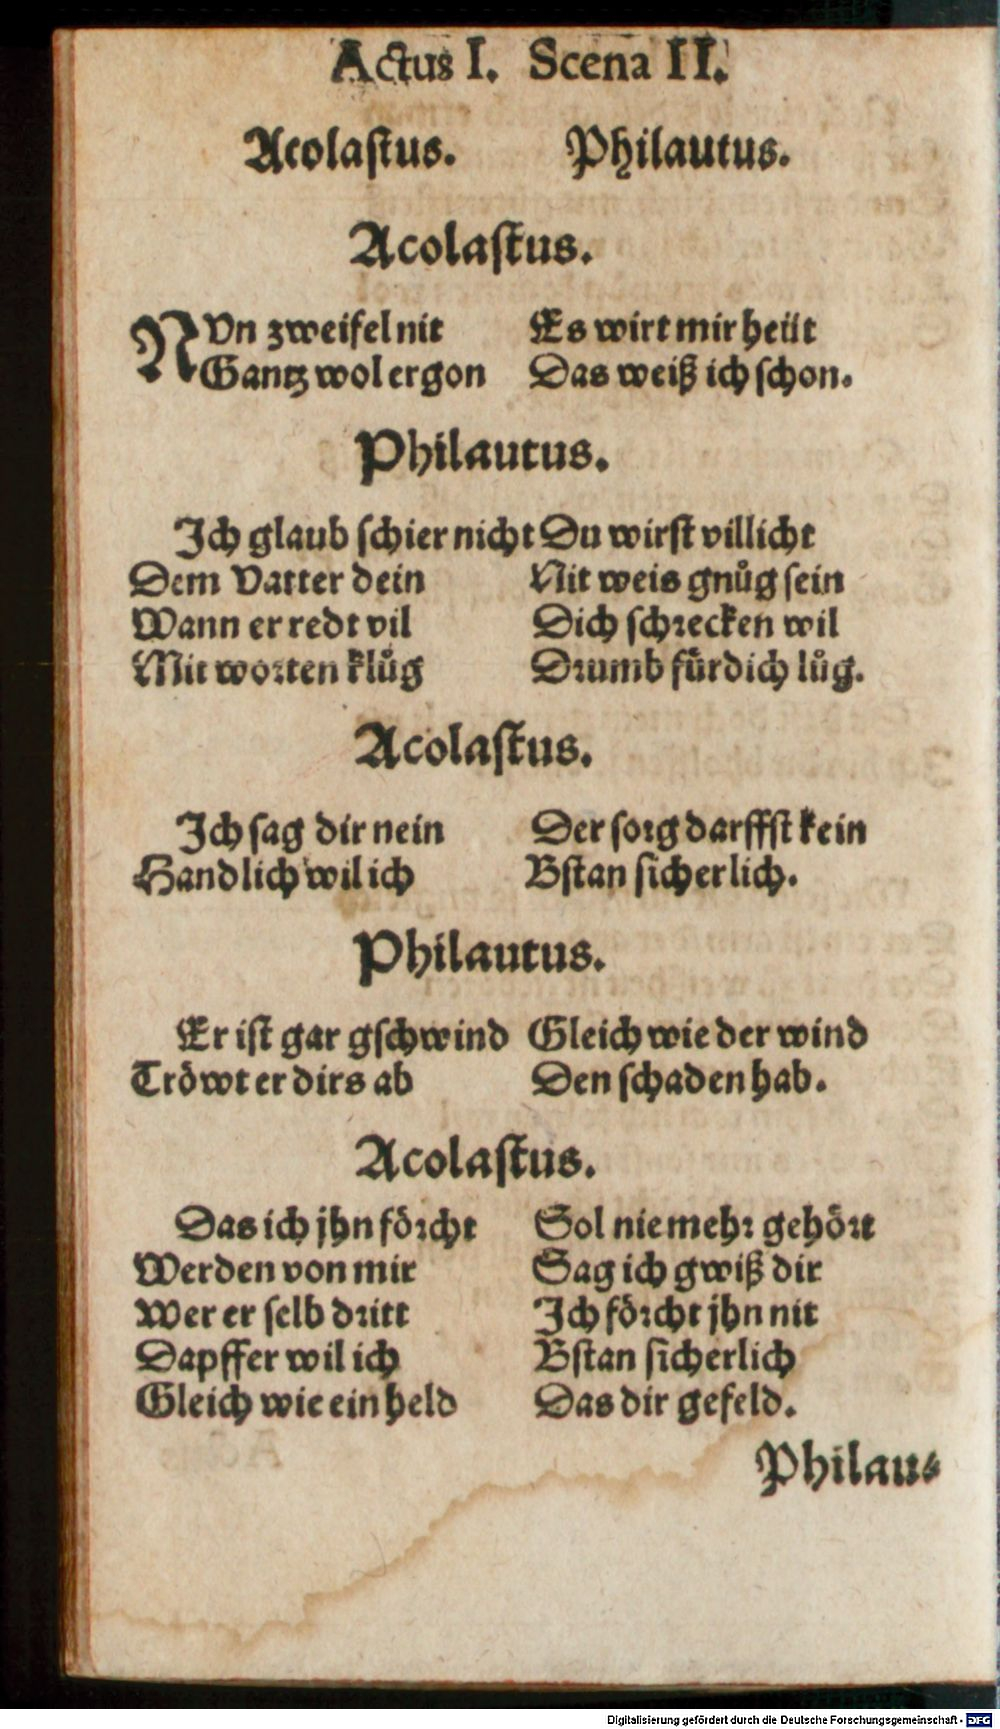 Actus I. Scena II.
Acolastus. Philautus.
Acolastus.
NVn zweifel nit Es wirt mir heüt
Gantz wol ergon Das weiß ich schon.
Philautus.
Ich glaub schier nicht Du wirst villicht
Dem Vatter dein Nit weis gnůg sein
Wann er redt vil Dich schrecken wil
Mit worten klůg Drumb für dich lůg.
Acolastus.
Ich sag dir nein Der sorg darffst kein
Handlich wil ich Bstan sicherlich.
Philautus.
Er ist gar gschwind Gleich wie der wind
Tröwt er dirs ab Den schaden hab.
Acolastus.
Das ich jhn förcht Sol nie mehr gehört
Werden von mir Sag ich gwiß dir
Wer er selb dritt Ich förcht jhn nit
Dapffer wil ich Bstan sicherlich
Gleich wie ein held Das dir gefeld.
Philau⸗
Digitalisierung gefördert durch die Deutsche Forschungsgemeinschaft - DFG